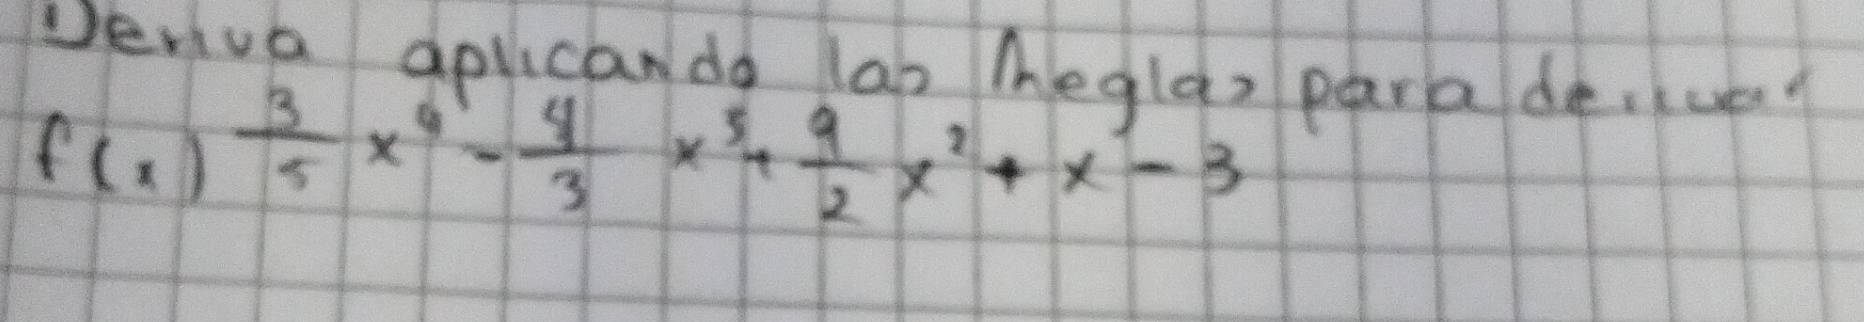 Deriva aplicando las reglas para derivar
f(x) 3/5 x^4 - 4/3 x^3 + 9/2 x^2 + x - 3